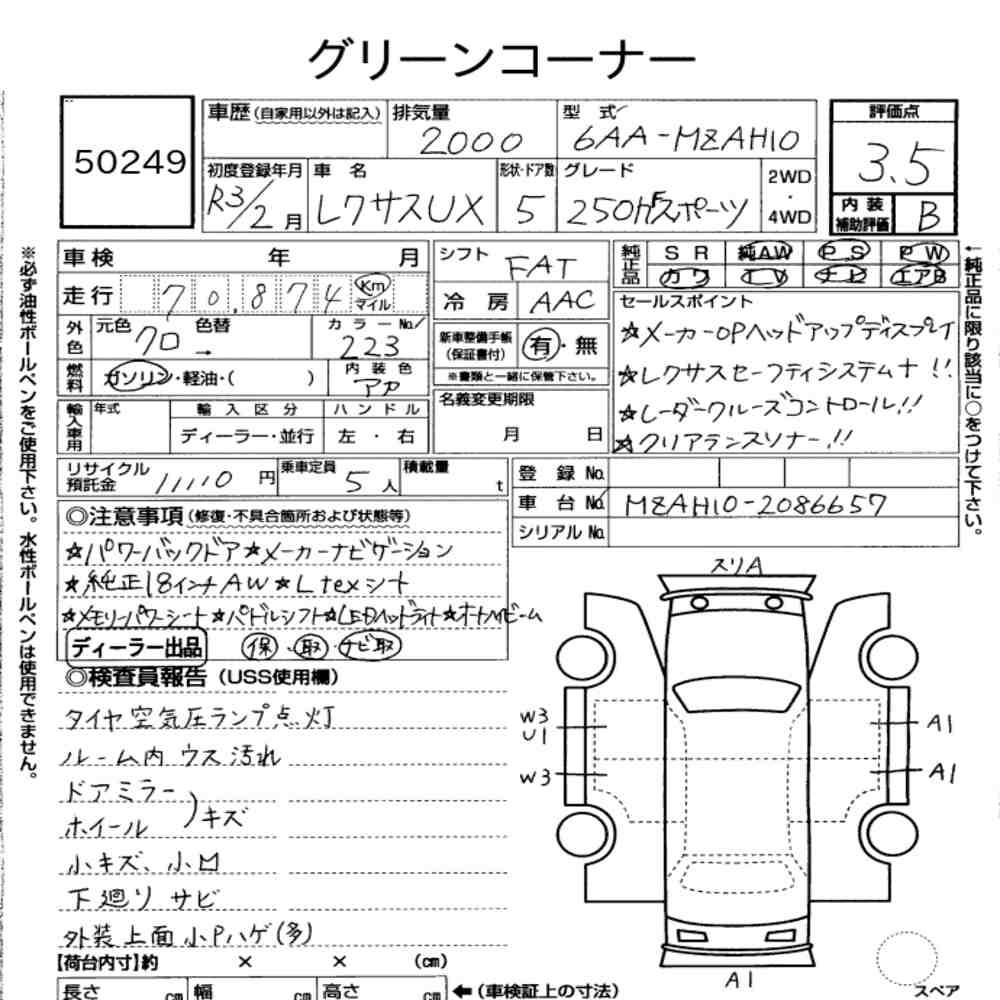 グリーンコーナー
50249
車歴(自家用以外は記入) 排気量 2000 型式 6AA-MZAH10 評価点 3.5
初度登録年月 R3/2月 車名 レクサスUX 形状・ドア数 5 グレード 250h Fスポーツ 2WD・4WD 内装補助評価 B
車検 年 月
走行 70,874 Km マイル
外色 元色 クロ 色替 → カラーNo. 223
燃料 ガソリン・軽油・( ) 内装色 アカ
輸入車用 年式 輸入区分 ディーラー・並行 ハンドル 左・右
シフト FAT
冷房 AAC
新車整備手帳(保証書付) 有・無
※書類と一緒に保管下さい。
名義変更期限
月 日
純正品 SR 純AW PS PW
カワ TV ナビ エアB
セールスポイント
☆メーカーOPヘッドアップディスプレイ
☆レクサスセーフティシステムナ!!
☆レーダークルーズコントロール!!
☆クリアランスソナー!!
リサイクル預託金 11110円 乗車定員 5人 積載量 t
登録No.
車台No. MZAH10-2086657
シリアルNo.
◎注意事項(修復・不具合箇所および状態等)
☆パワーバックドア☆メーカーナビゲーション
☆純正18インチAW☆Ltexシート
☆メモリーパワーシート☆パドルシフト☆LEDヘッドライト☆オートハイビーム
ディーラー出品 保・取 ナビ取
◎検査員報告(USS使用欄)
タイヤ空気圧ランプ点灯
ルーム内 ウス汚れ
ドアミラー
ホイール )キズ
小キズ、小凹
下廻り サビ
外装上面 小Pハゲ(多)
【荷台内寸】約 × × (cm)
長さ cm 幅 cm 高さ cm ←(車検証上の寸法)
スリA
W3
U1
W3
A1
A1
A1
スペア
※必ず油性ボールペンをご使用下さい。水性ボールペンは使用できません。
←純正品に限り該当に○をつけて下さい。